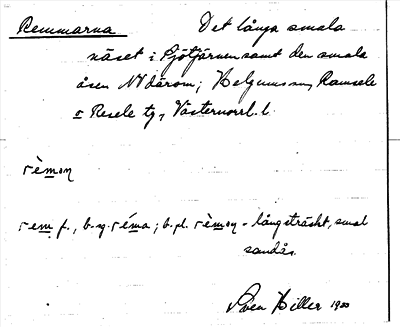 Remmarna Det långa smala
näset i Sjötjärnen samt den smala
åsen N därom; Helgums sn, Ramsele
o Resele tg, Västernorrl. l.
rèmạn
rem f., b. sg. réma; b. pl. rèmạn = långsträckt, smal
sandås.
Sven Hiller 1920